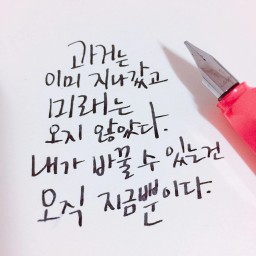 과거는
이미 지나갔고
미래는
오지 않았다.
내가 바꿀 수 있는건
오직 지금뿐이다.